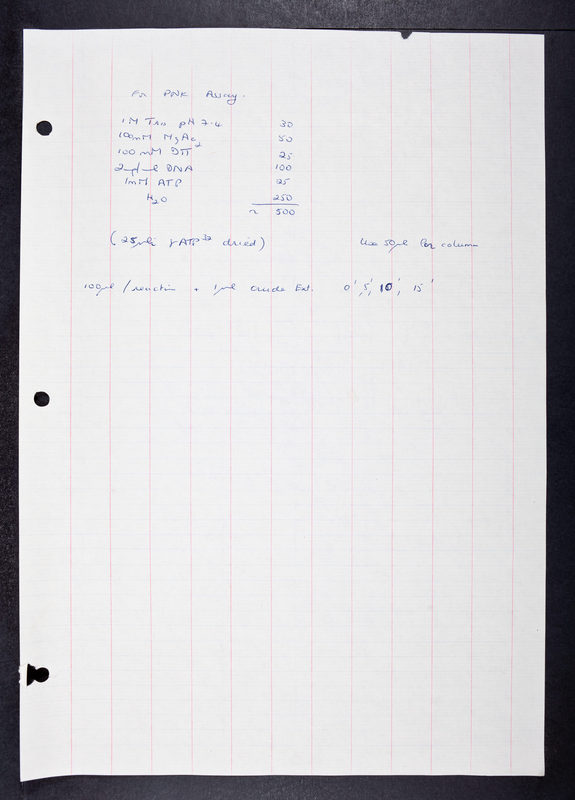 For PNK Assay.
1M Tris pH 7.4 30
100mM MgAc2 50
100 mM DTT 25
2µg/µl DNA 100
1mM ATP 25
H2O 250
~ 500
(25µli γATP32 dried) Use 50µl for column
100µl / reaction + 1µl crude Ext. 0', 5', 10', 15'